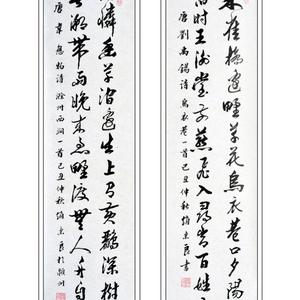 雀橋邊野草花烏衣巷口夕陽
时王謝堂前燕飛入尋常百姓
唐劉禹錫詩烏衣巷一首己丑仲秋 良書
憐幽草澗邊生上有黃鸝深樹
潮帶雨晚來急野渡無人舟自
唐韋應物詩滁州西澗一首己丑仲秋 良於 州